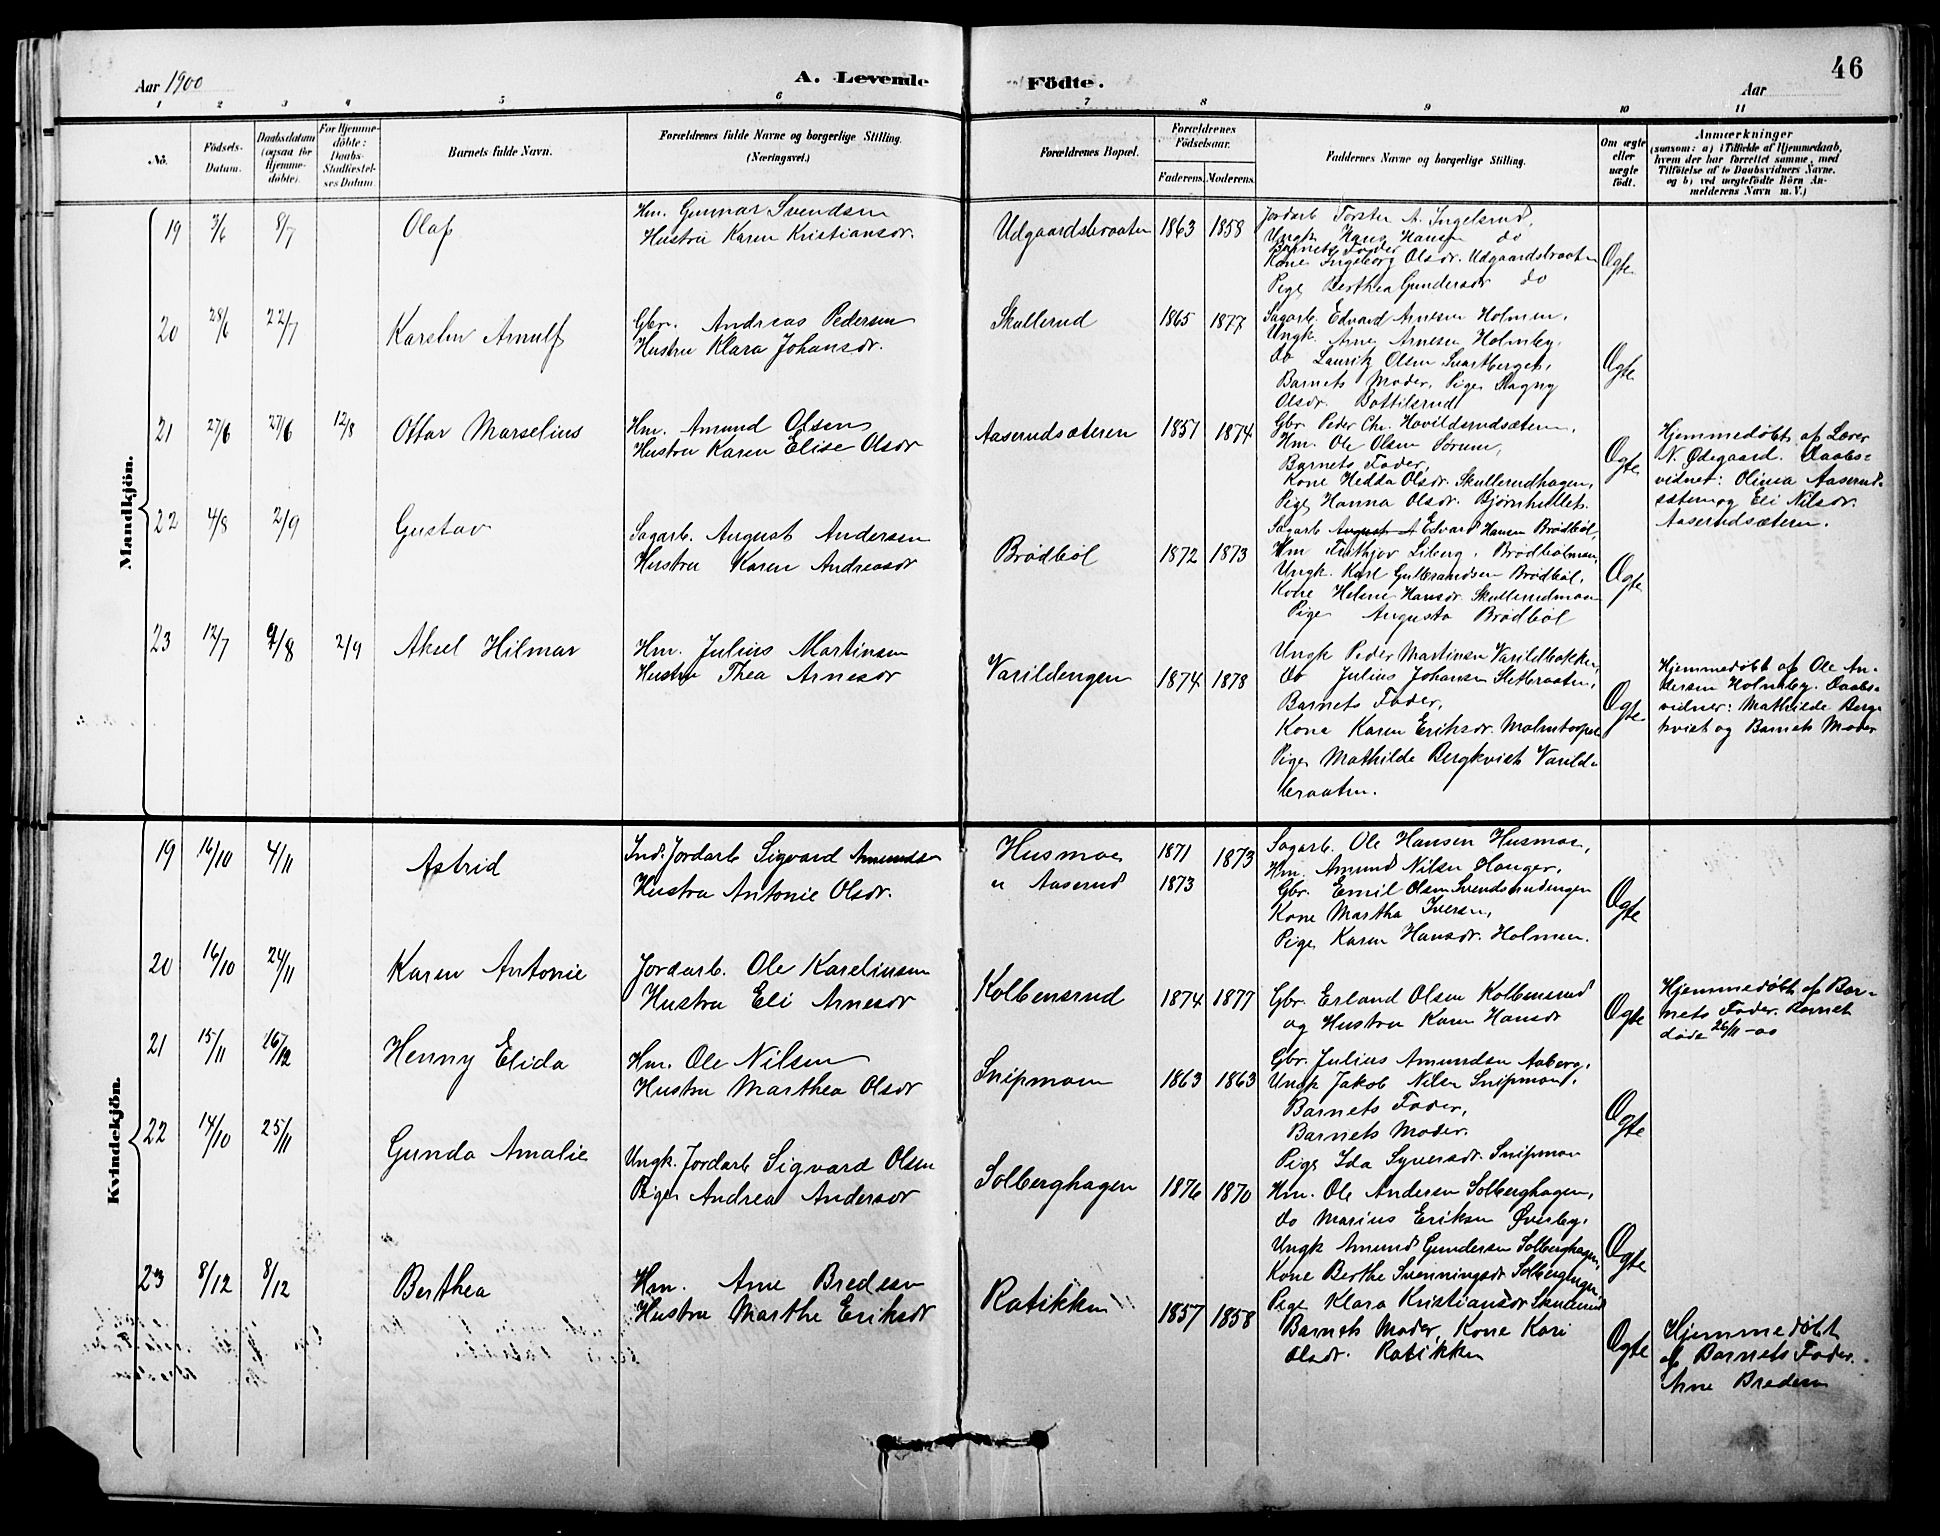 46
Aar 1900
A. Levende Födte.
Aar
1 2 3 4 5 6 7 8 9 10 11
No.
Födsels-Datum.
Daabsdatum (ogsaa for Hjemmedöbte).
For Hjemmedöbte: Daabs-Stadfæstelses Datum.
Barnets fulde Navn.
Forældrenes fulde Navne og borgerlige Stilling. (Næringsvei.)
Forældrenes Bopæl.
Forældrenes Födselsaar.
Faderens. Moderens.
Faddernes Navne og borgerlige Stilling.
Om ægte eller uægte födt.
Anmærkninger
(saasom: a) i Tilfælde af Hjemmedaab,
hvem der har forrettet samme, med
Tilföielse af to Daabsvidners Navne.
og b) ved uægtefödte Börn Anmelderens Navn m. V.)
Mandkjön.
19 3/6 8/7 Olaf
Hm. Gunnar Svendsen
Hustru Karen Kristiansdr.
Udgaardsbraaten 1863 1858
Jordarb Torster A. Ingelsrud,
Ungk. Hans Hansen do
Barnets Fader
Kone Ingeborg Olsdr. Udgaardsbraaten
Pige Berthea Gundersdr do
Ægte
20 28/6 22/7 Karsten Arnulf
Gbr. Andreas Pedersen
Hustru Klara Johansdr.
Skullerud 1865 1877
Sagarb. Edvard Arnesen Holmen,
Ungk. Arne Arnesen Holmby,
do Lauritz Olsen Svartberget,
Barnets Moder, Pige Magny
Olsdr. Bottilsrud
Ægte
21 27/6 27/6 12/8 Ottar Marselius
Hm. Amund Olsen
Hustru Karen Elise Olsdr
Aaserudsæteren 1851 1874
Gbr. Peder Chr. Hovildsrudsæteren,
Hm. Ole Olsen Sørum,
Barnets Fader,
Kone Hedda Olsdr. Skullerudhagen,
Pige Hanna Olsdr. Bjørnhullet.
Ægte
Hjemmedøbt af Lærer
N. Ødegaard. Daabs-
vidner: Olivia Aaserud-
sæteren og Eli Nilsdr.
Aaserudsæteren.
22 4/8 2/9 Gustav
Sagarb. August Andersen
Hustru Karen Andreasdr
Brødbøl 1872 1873
Sagarb August A Edvard Hansen Brødbøl,
Hm Fritjov Liberg, Brødbølmoen,
Ungk. Karl Gulbrandsen Brødbøl,
Kone Helene Hansdr. Skullerudmoen
Pige Augusta Brødbøl
Ægte
23 12/7 9/8 2/9 Aksel Hilmar
Hm. Julius Martinsen
Hustru Thea Arnesdr
Varildengen 1874 1878
Ungk Peder Martinsen Varildbakken,
do Julius Johansen Sletbraaten,
Barnets Fader,
Kone Karen Eriksdr.
Pige Mathilde Bergkvist Varild-
braaten.
Ægte
Hjemmedøbt af Ole An-
dersen Holmby. Daabs-
vidner: Mathilde Berg-
kvist og Barnets Moder
Kvindekjön.
19 16/10 4/11 Astrid
Ind. Jordarb Sigvard Amundsen
Hustru Antonie Olsdr.
Husmoen
u Aaserud
1871 1873
1873
Sagarb. Ole Hansen Husmoen,
Hm. Amund Nilsen Hanger,
Gbr. Emil Olsen Svendsrudengen
Kone Martha Iversen,
Pige Karen Hansdr. Holmen.
Ægte
20 16/10 24/11 Karen Antonie
Jordarb. Ole Karelinsen
Hustru Eli Arnesdr
Kolbensrud 1874 1877
Gbr. Erland Olsen Kolbensrud
og Hustru Karen Hansdr
Ægte
Hjemmedøbt af Bar-
nets Fader. Barnet
døde 26/11-00
21 15/11 16/12 Henny Elida
Hm. Ole Nilsen
Hustru Marthea Olsdr
Snipmoen 1863 1863
Gbr. Julius Amundsen Aaberg,
Ungk Jakob Nilsen Snipmoen,
Barnets Fader,
Barnets Moder.
Pige Ida Syversdr. Snipmoen
Ægte
22 14/10 25/11 Gunda Amalie
Ungk. Jordarb Sigvard Olsen
Pige Andrea Andersdr
Solberghagen 1876 1870
Hm. Ole Andersen Solberghagen,
do Marius Eriksen Øverby,
Ungk Amund Gundersen Solberghagen,
Kone Berthe Svenningsdr Solbergengen,
Pige Klara Kristiansdr Skullerud
Ægte
23 8/12 8/12 Berthea
Hm. Arne Bredesen
Hustru Marthe Eriksdr
Ratikken 1857 1858
Barnets Moder, Kone Kari
Olsdr. Ratikken
Ægte
Hjemmedøbt
af Barnets Fader.
Arne Bredesen